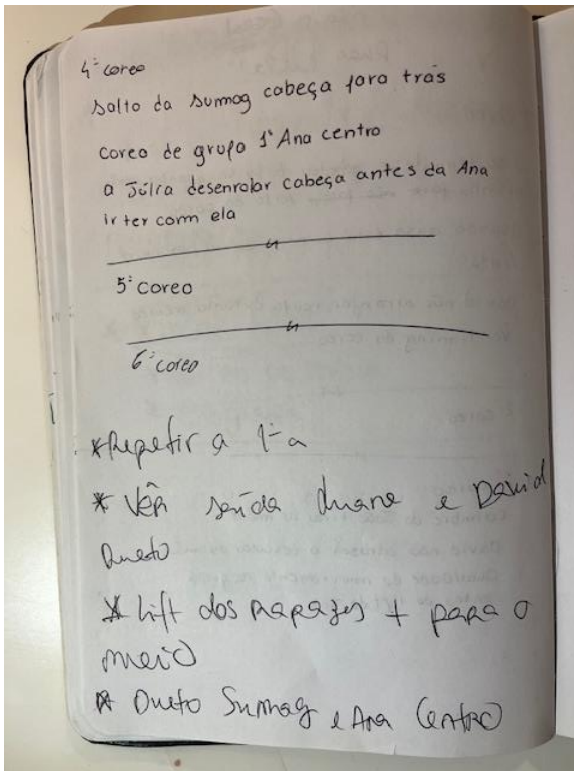 4ª coreo
Salto da Sumag cabeça para trás
Coreo de grupo 1º Ana centro
a Júlia desenrolar cabeça antes da Ana
ir ter com ela
5ª coreo
6ª coreo
*Repetir a 1ª
* Ver saída duane e David
Dueto
* Lift dos rapazes + para o
meio
* Dueto Sumag e Ana Centro